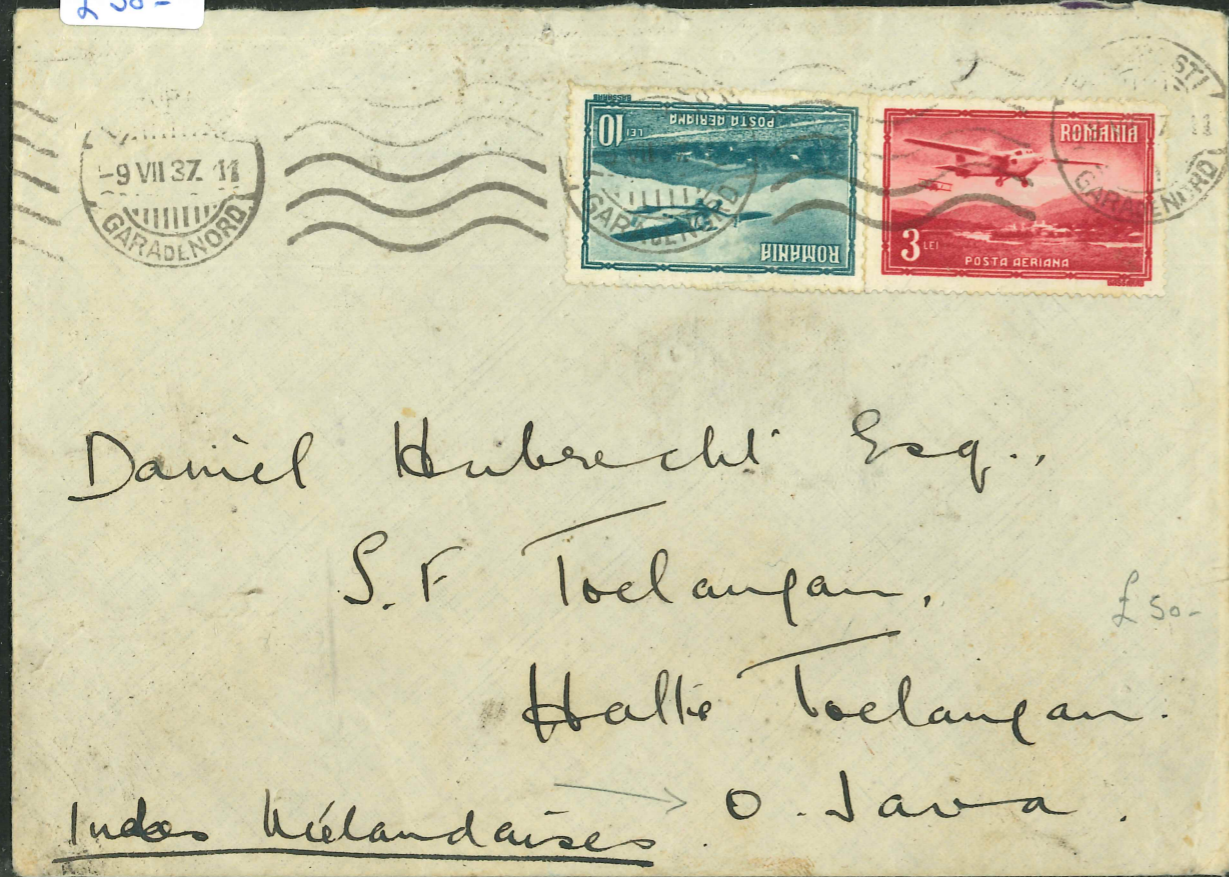 £ 50-
-9 VII 37. 11
GARA DE NORD
10
LEI
POSTA AERIANA
ROMANIA
GARA DE NORD
ROMANIA
3 LEI
POSTA AERIANA
STI
7 11
GARA DE NORD
Daniel Hubrecht Esq.,
S.F Toelangan,
£ 50-
Halte Toelangan.
O. Java.
Indes Néelandaises.